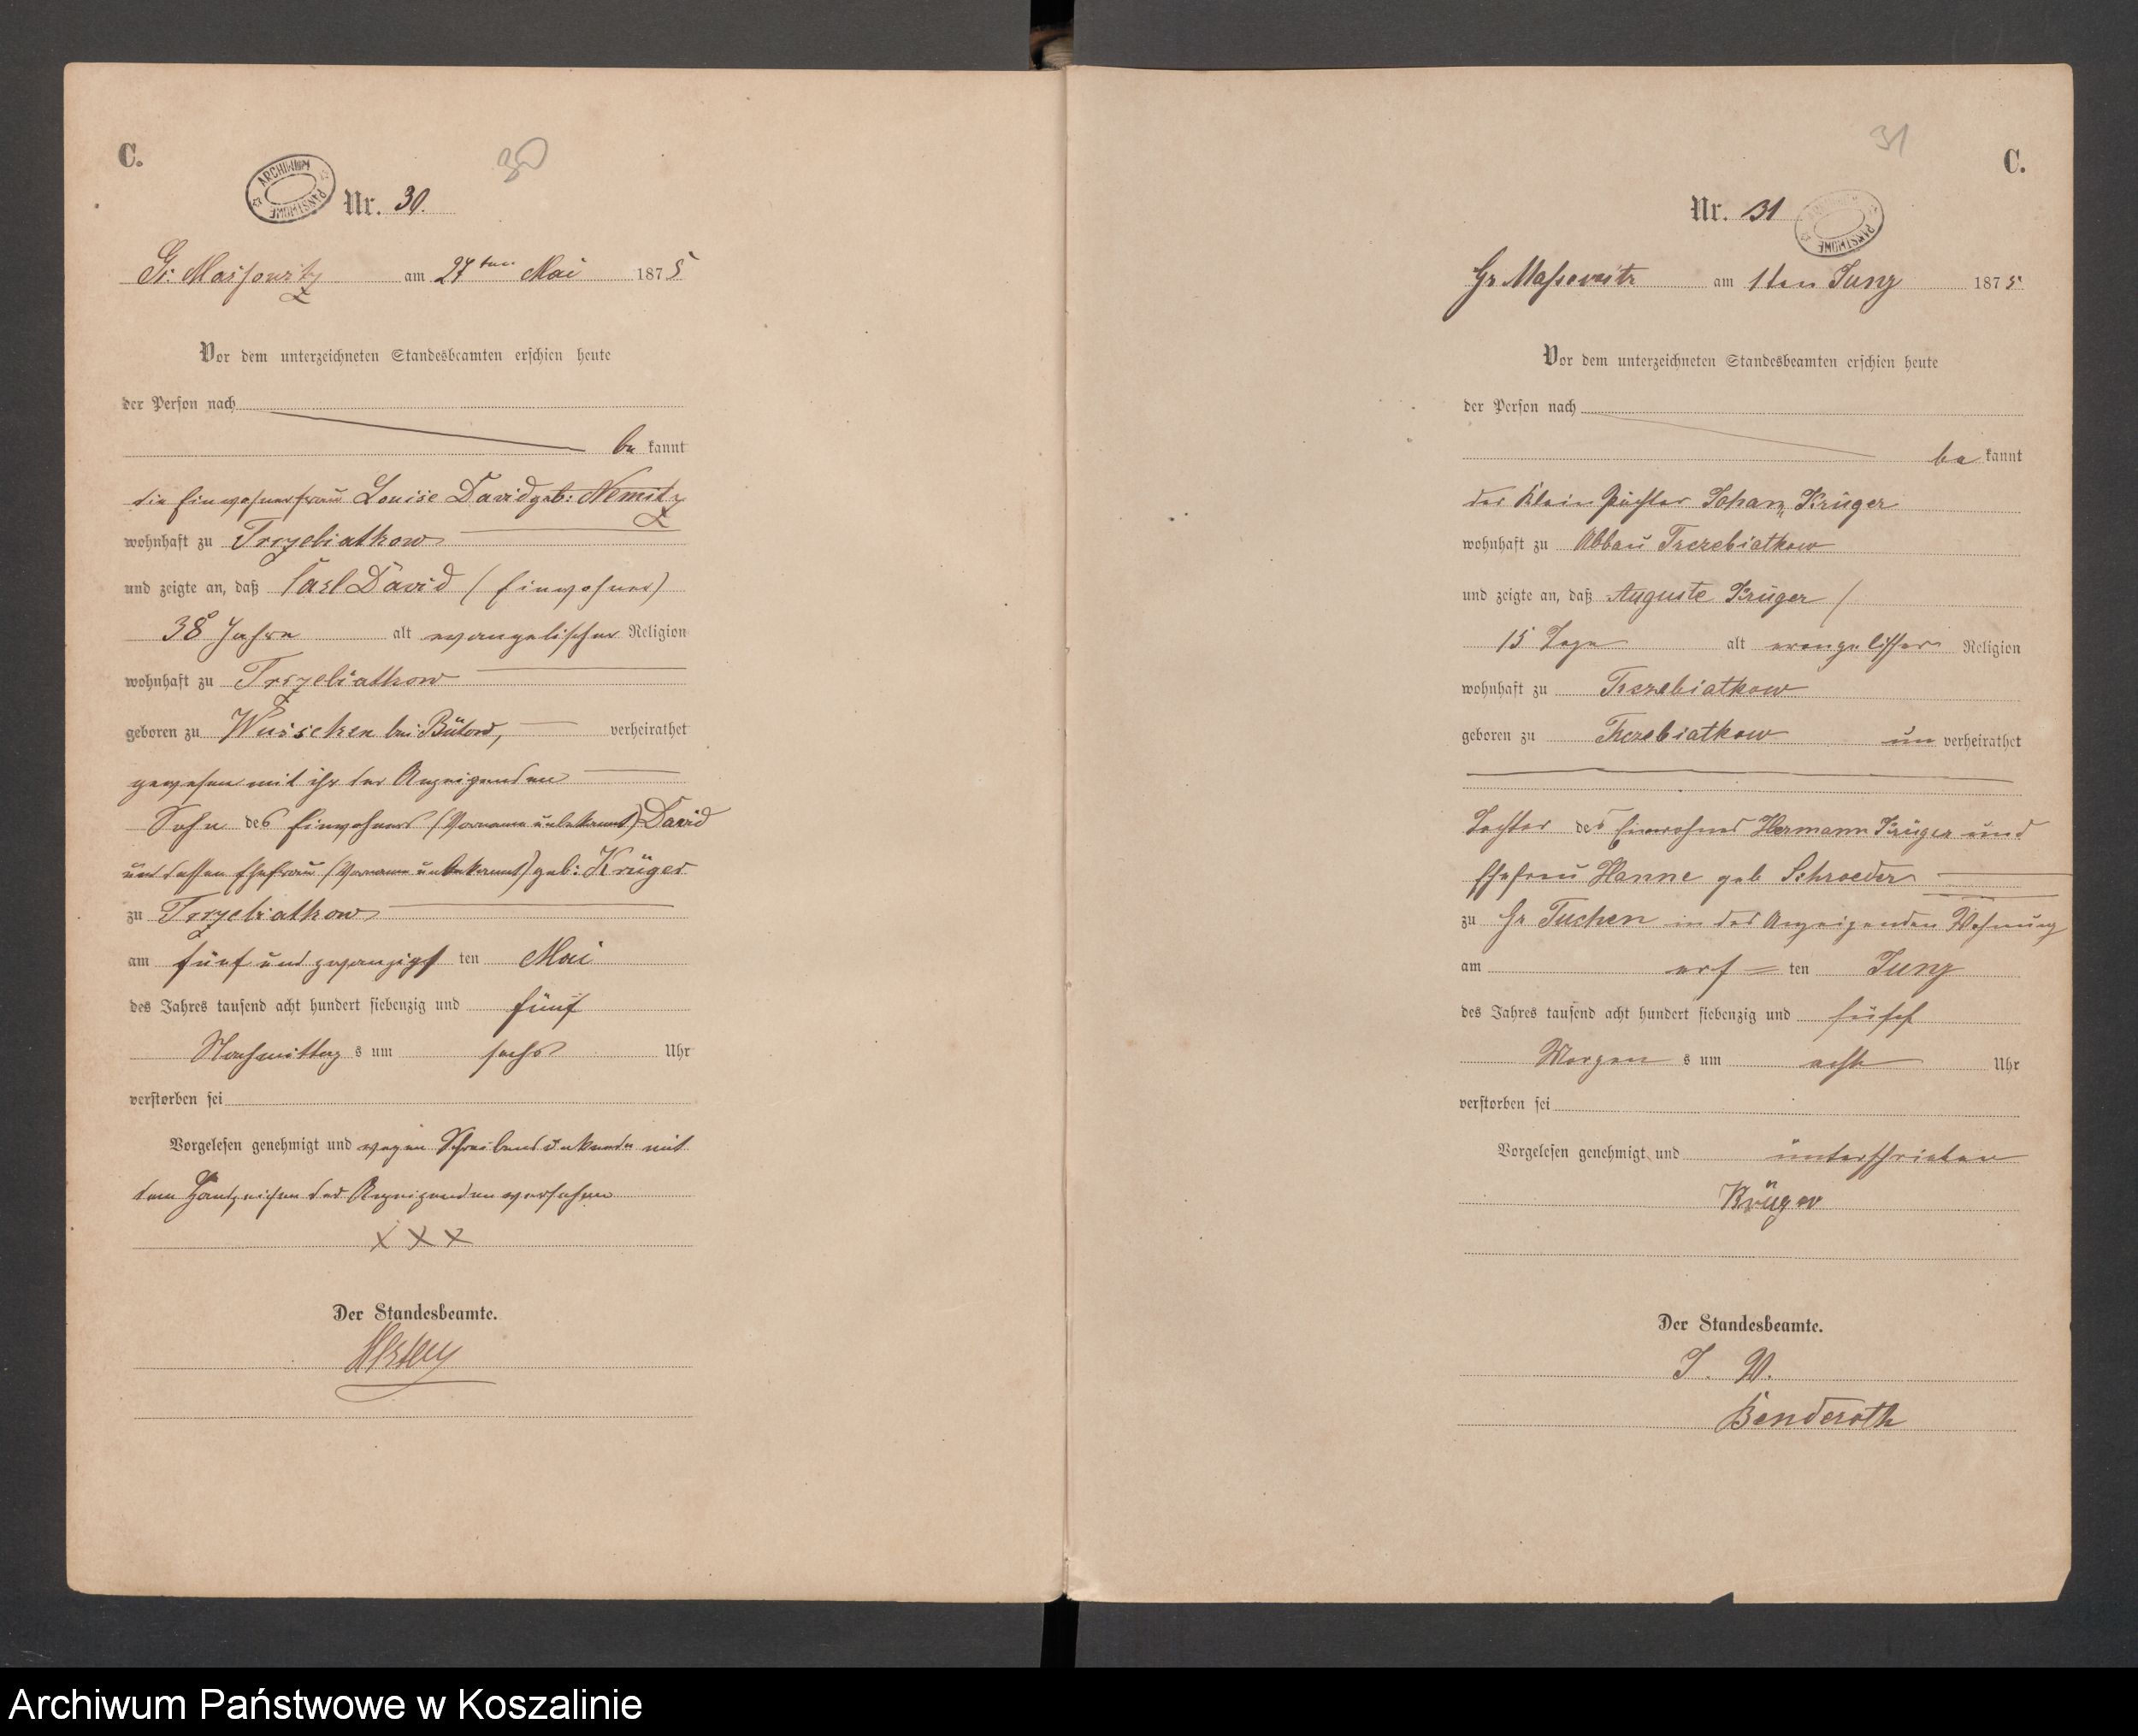 C.
30
ARCHIWUM PAŃSTWOWE
Nr. 30.
Gr. Massowitz am 27ten Mai 1875
Vor dem unterzeichneten Standesbeamten erschien heute
der Person nach
be kannt
die Einwohnerfrau Louise David geb: Nemitz
wohnhaft zu Trzebiatkow
und zeigte an, daß Carl David (Einwohner)
38 Jahre alt evangelischer Religion
wohnhaft zu Trzebiatkow
geboren zu Wusseken bei Bütow, verheirathet
gewesen mit ihr der Anzeigenden
Sohn des Einwohners (Vorname unbekannt) David
und dessen Ehefrau (Vorname unbekannt) geb: Krüger
zu Trzebiatkow
am fünf und zwanzigsten Mai
des Jahres tausend acht hundert siebenzig und fünf
Nachmittags um sechs Uhr
verstorben sei
Vorgelesen genehmigt und wegen Schreibensunkunde mit
dem Handzeichen der Anzeigenden versehen
X X X
Der Standesbeamte.
31
C.
Nr. 31
ARCHIWUM PAŃSTWOWE
Gr Massowitz am 1ten Juny 1875
Vor dem unterzeichneten Standesbeamten erschien heute
der Person nach
be kannt
der Klein Pächter Johann Krüger
wohnhaft zu Abbau Trczebiatkow
und zeigte an, daß Auguste Krüger /
15 Tage alt evangelischer Religion
wohnhaft zu Trczebiatkow
geboren zu Trczebiatkow un verheirathet
Tochter des Einwohners Hermann Krüger und
Ehefrau Hanne geb Schroeder
zu Gr Tuchen in des Anzeigenden Wohnung
am ersten Juny
des Jahres tausend acht hundert siebenzig und fünf
Morgens um acht Uhr
verstorben sei
Vorgelesen genehmigt und unterschrieben
Krüger
Der Standesbeamte.
J. V.
Benderoth
Archiwum Państwowe w Koszalinie